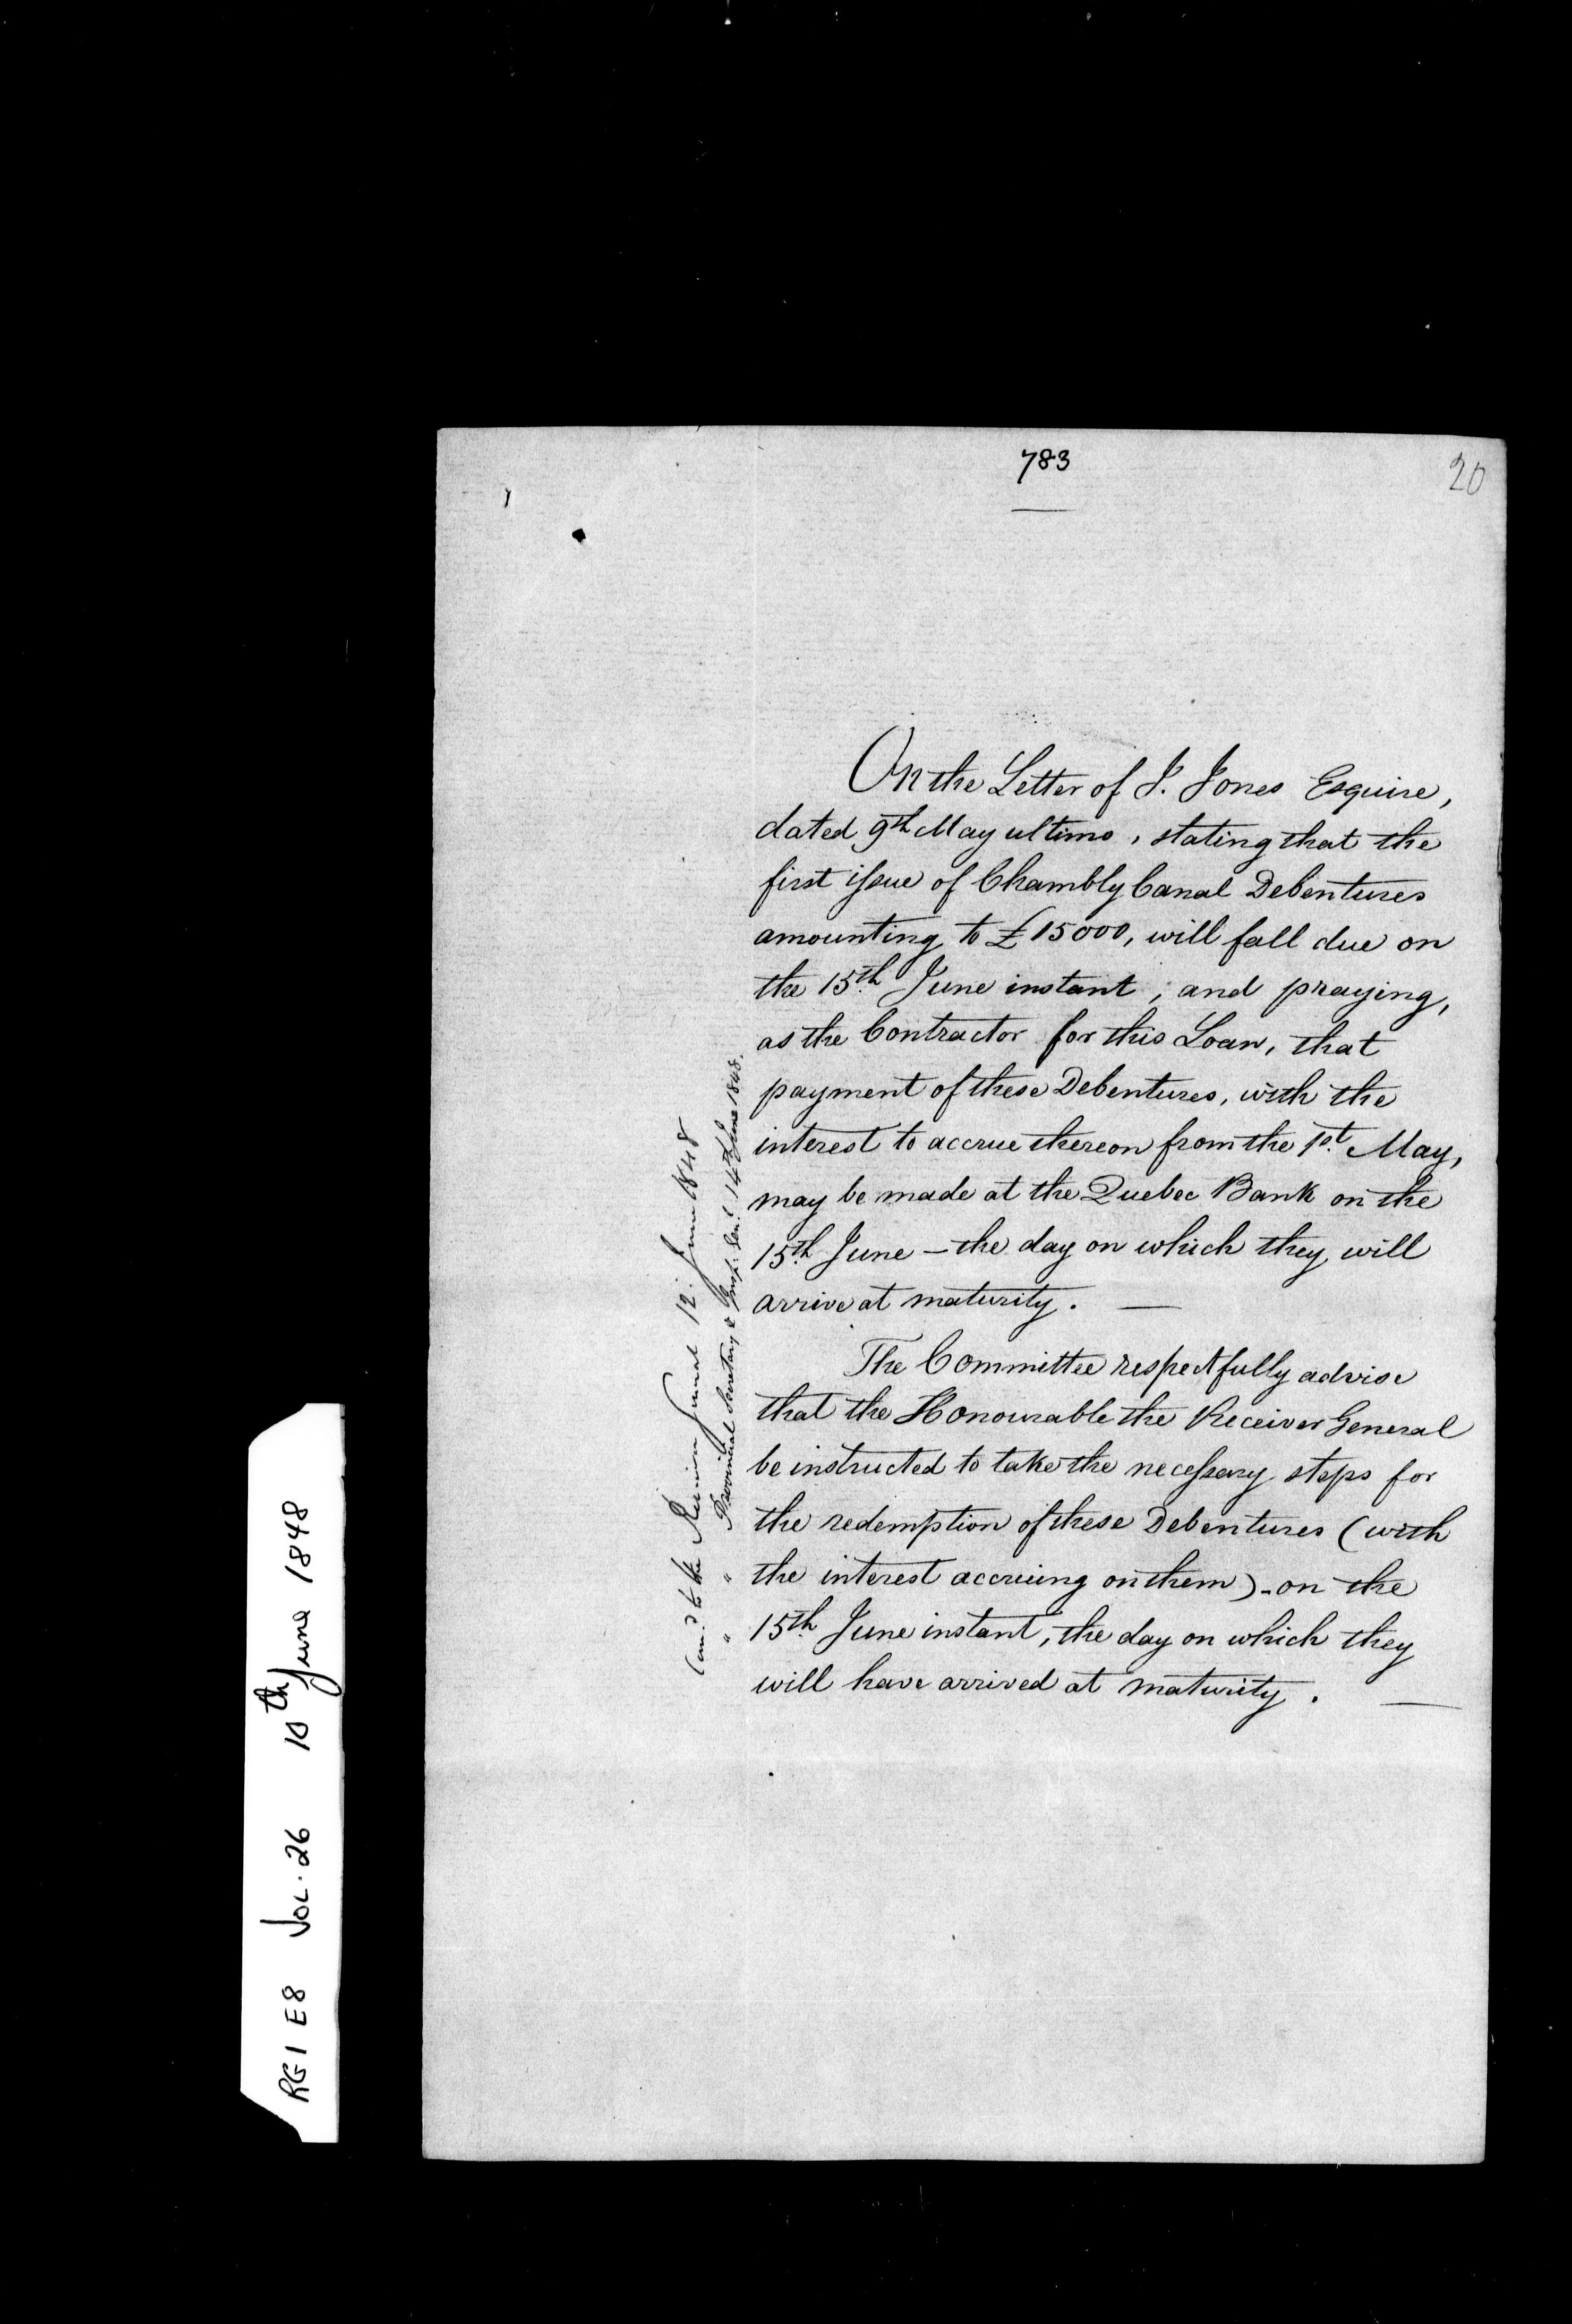 783
20
On the Letter of J. Jones Esquire,
dated 9th May ultimo, stating that the
first issue of Chambly Canal Debentures
amounting to £15000, will fall due on
the 15th June instant; and praying,
as the Contractor for this Loan, that
payment of these Debentures, with the
interest to accrue thereon from the 1st. May,
may be made at the Quebec Bank on the
15th June – the day on which they will
arrive at maturity. —
The Committee respectfully advise
that the Honourable the Receiver General
be instructed to take the necessary steps for
the redemption of these Debentures (with
the interest accruing on them) - on the
15th June instant, the day on which they
will have arrived at maturity. —
Com.d to the Receiver General 12. June 1848
" " Provincial Secretary & Insp. Gen.l 14th June 1848.
RG 1 E8 Vol. 26 10th June 1848